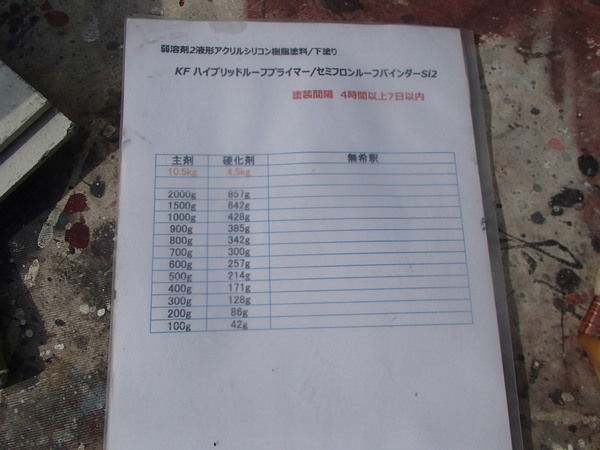 弱溶剤2液形アクリルシリコン樹脂塗料/下塗り
KF ハイブリッドルーフプライマー/セミフロンルーフバインダーSi2
塗装間隔 4時間以上7日以内
主剤 硬化剤 無希釈
10.5kg 4.5kg
2000g 857g
1500g 642g
1000g 428g
900g 385g
800g 342g
700g 300g
600g 257g
500g 214g
400g 171g
300g 128g
200g 86g
100g 42g